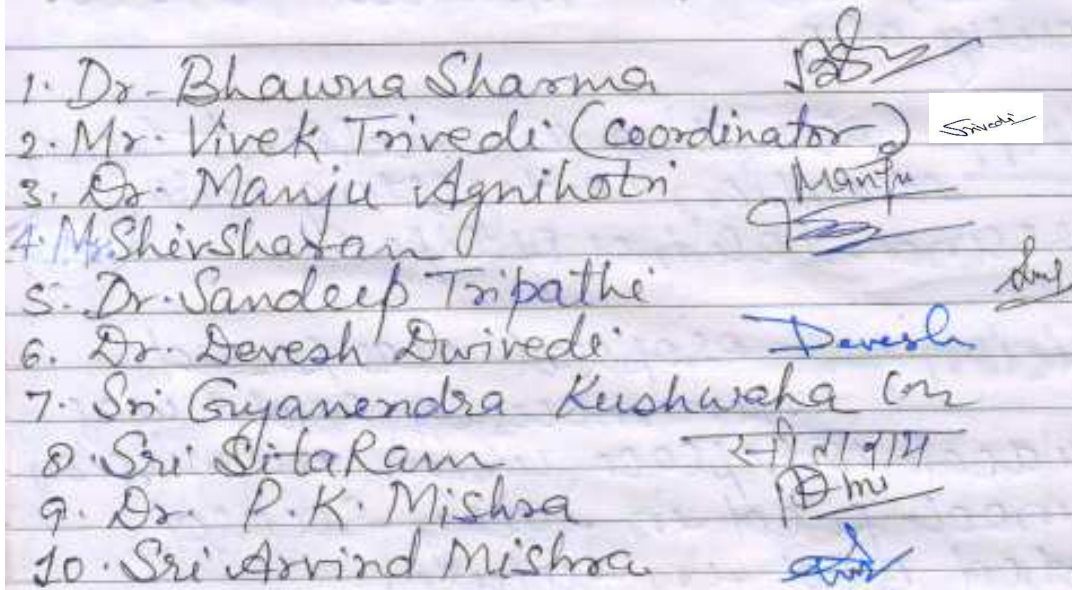 1. Dr. Bhawna Sharma
2. Mr. Vivek Trivedi (Coordinator) Trivedi
3. Dr. Manju Agnihotri Manju
4. Mr. ShivSharan
5. Dr. Sandeep Tripathi
6. Dr. Devesh Dwivedi Devesh
7. Sri Gyanendra Kushwaha
8. Sri SitaRam सीताराम
9. Dr. P.K. Mishra
10. Sri Arvind Mishra